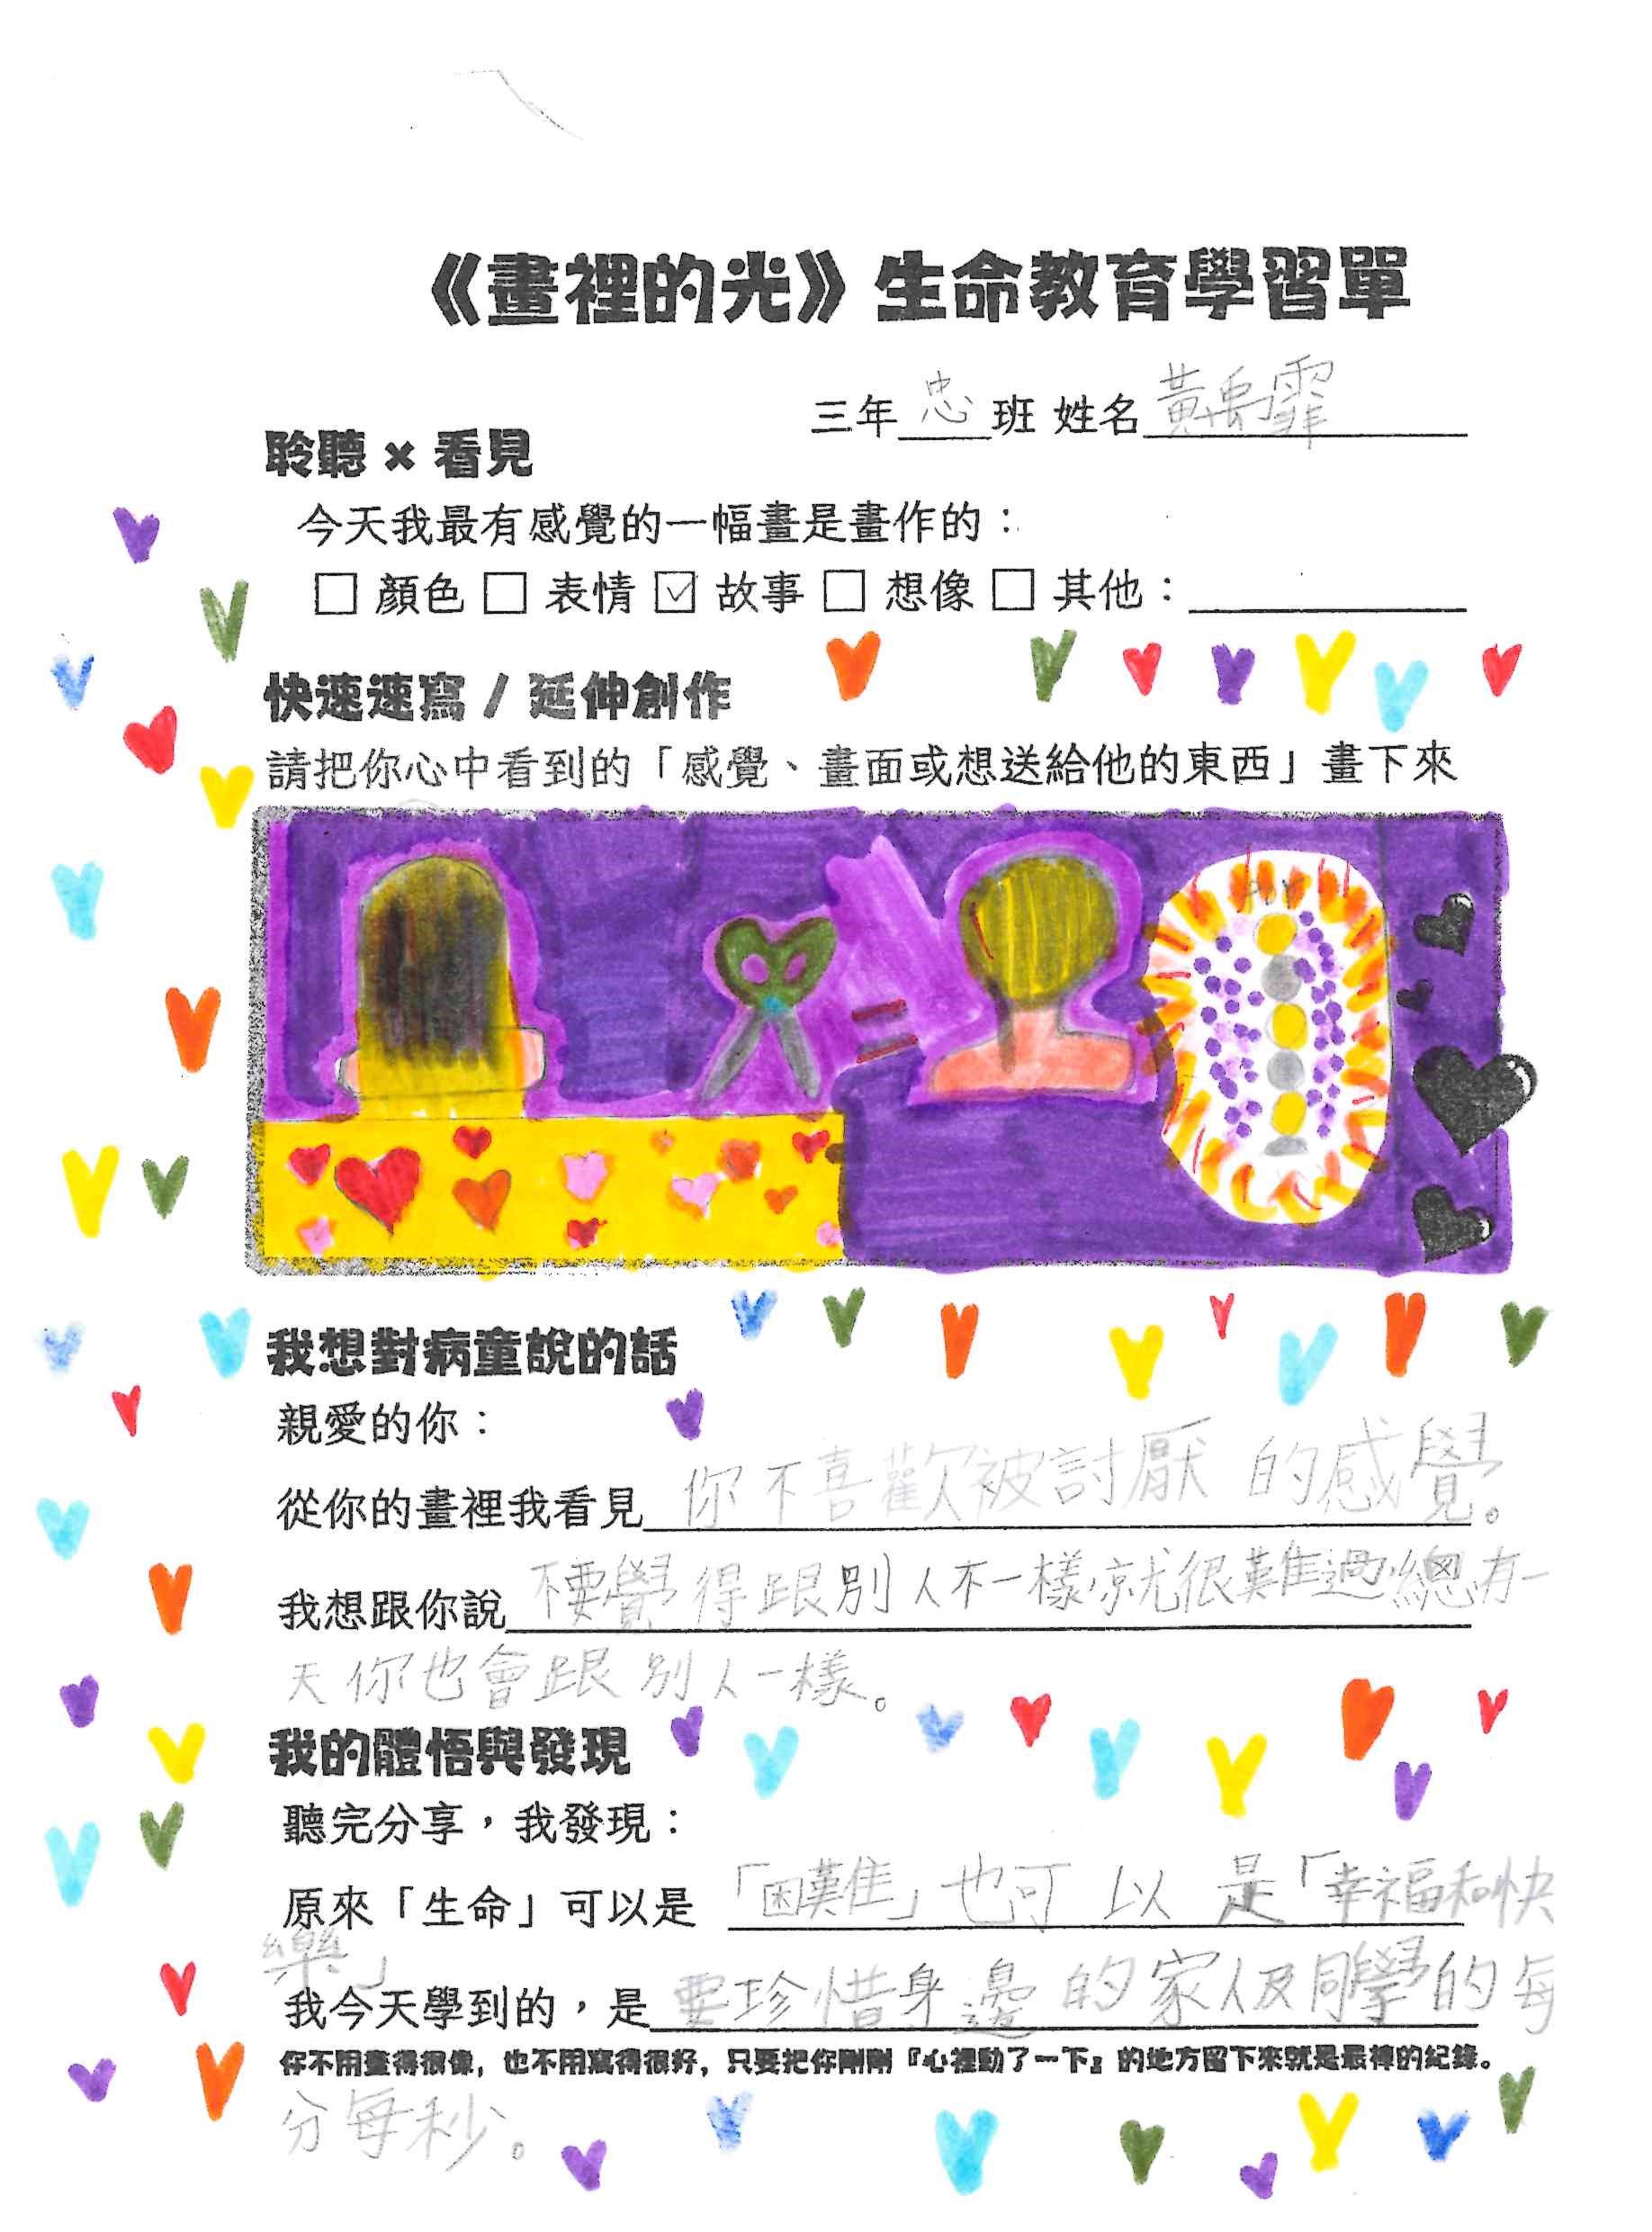 《畫裡的光》生命教育學習單
三年忠班 姓名黃禹霏
聆聽 × 看見
今天我最有感覺的一幅畫是畫作的：
□ 顏色 □ 表情 ☑ 故事 □ 想像 □ 其他：
快速速寫 / 延伸創作
請把你心中看到的「感覺、畫面或想送給他的東西」畫下來
我想對病童說的話
親愛的你：
從你的畫裡我看見 你不喜歡被討厭的感覺。
我想跟你說 不要覺得跟別人不一樣就很難過總有一
天你也會跟別人一樣。
我的體悟與發現
聽完分享，我發現：
原來「生命」可以是 「困難」也可以是「幸福和快
樂」
我今天學到的，是要珍惜身邊的家人及同學的每
你不用畫得很像，也不用寫得很好，只要把你剛剛『心裡動了一下』的地方留下來就是最棒的紀錄。
分每秒。